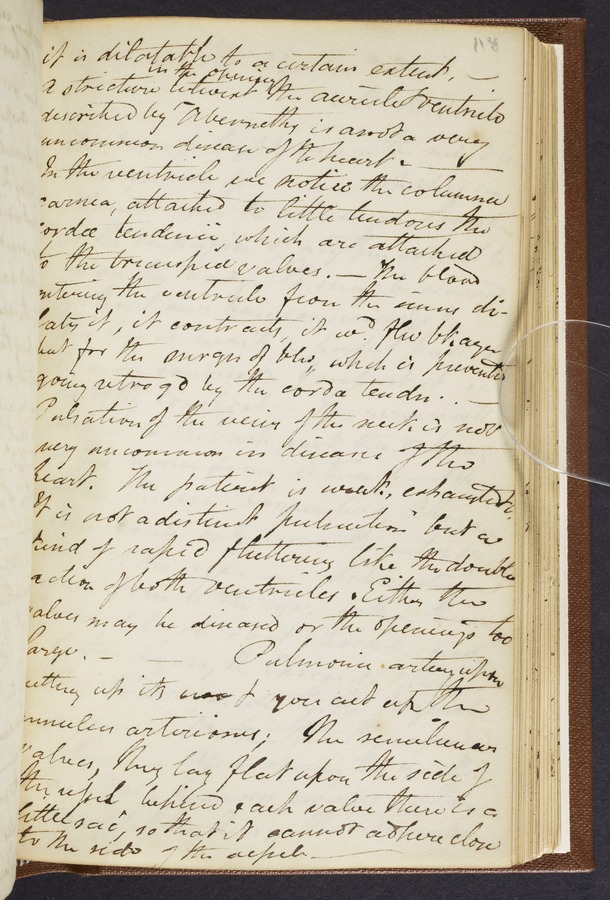 118
it is dilatable to a certain extent. —
in the opening
a stricture betwixt the auricle & ventricle
described by Abernethy is a not a very
uncommon disease of the heart. —
In the ventricle we notice the columnæ
carnea, attached to little tendons the
cordæ tendinii, which are attached
to the tricuspid valves. — The blood
entering the ventricle from the sinus di-
lates it, it contracts, it wd. flw bk. agn
but for the margn of the which is prevented
going retrogd by the corda tendn. . —
Pulsation of the veins of the neck is not
very uncommon in disease of the
heart. The patient is weak, exhausted.
It is not a distinct pulsation but a
kind of rapid fluttering like the double
action of both ventricles. Either the
valves may be diseased or the openings too
large. — — Pulmonic artery upon
cutting up its root you cut up the
annulus arteriosus; The semilunar
valves, they lay flat upon the side of
the vessel behind each valve there is a
little sac, so that it cannot adhere close
to the side of the vessel —